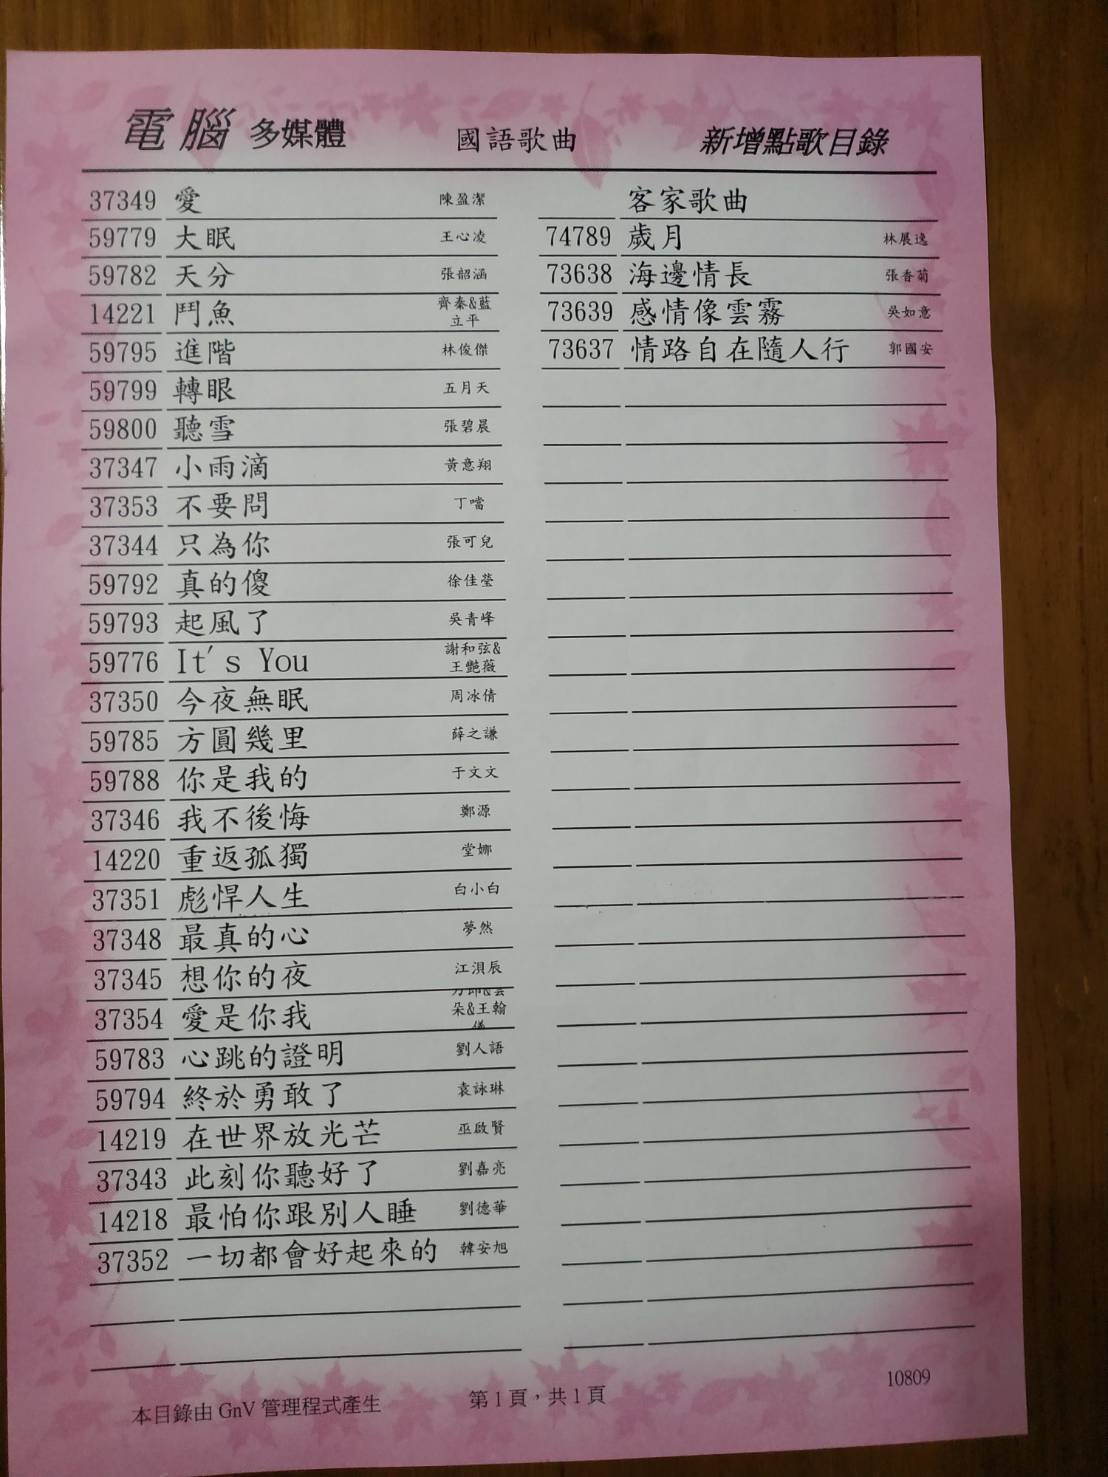 電腦 多媒體 國語歌曲 新增點歌目錄
37349 愛 陳盈潔
59779 大眠 王心凌
59782 天分 張韶涵
14221 鬥魚 齊秦&藍立平
59795 進階 林俊傑
59799 轉眼 五月天
59800 聽雪 張碧晨
37347 小雨滴 黃意翔
37353 不要問 丁噹
37344 只為你 張可兒
59792 真的傻 徐佳瑩
59793 起風了 吳青峰
59776 It's You 謝和弦&王艷薇
37350 今夜無眠 周冰倩
59785 方圓幾里 薛之謙
59788 你是我的 于文文
37346 我不後悔 鄭源
14220 重返孤獨 堂娜
37351 彪悍人生 白小白
37348 最真的心 夢然
37345 想你的夜 江湨辰
37354 愛是你我 朵&王翰
59783 心跳的證明 劉人語
59794 終於勇敢了 袁詠琳
14219 在世界放光芒 巫啟賢
37343 此刻你聽好了 劉嘉亮
14218 最怕你跟別人睡 劉德華
37352 一切都會好起來的 韓安旭
客家歌曲
74789 歲月 林展逸
73638 海邊情長 張香菊
73639 感情像雲霧 吳如意
73637 情路自在隨人行 郭國安
本目錄由 GnV 管理程式產生 第1頁，共1頁 10809